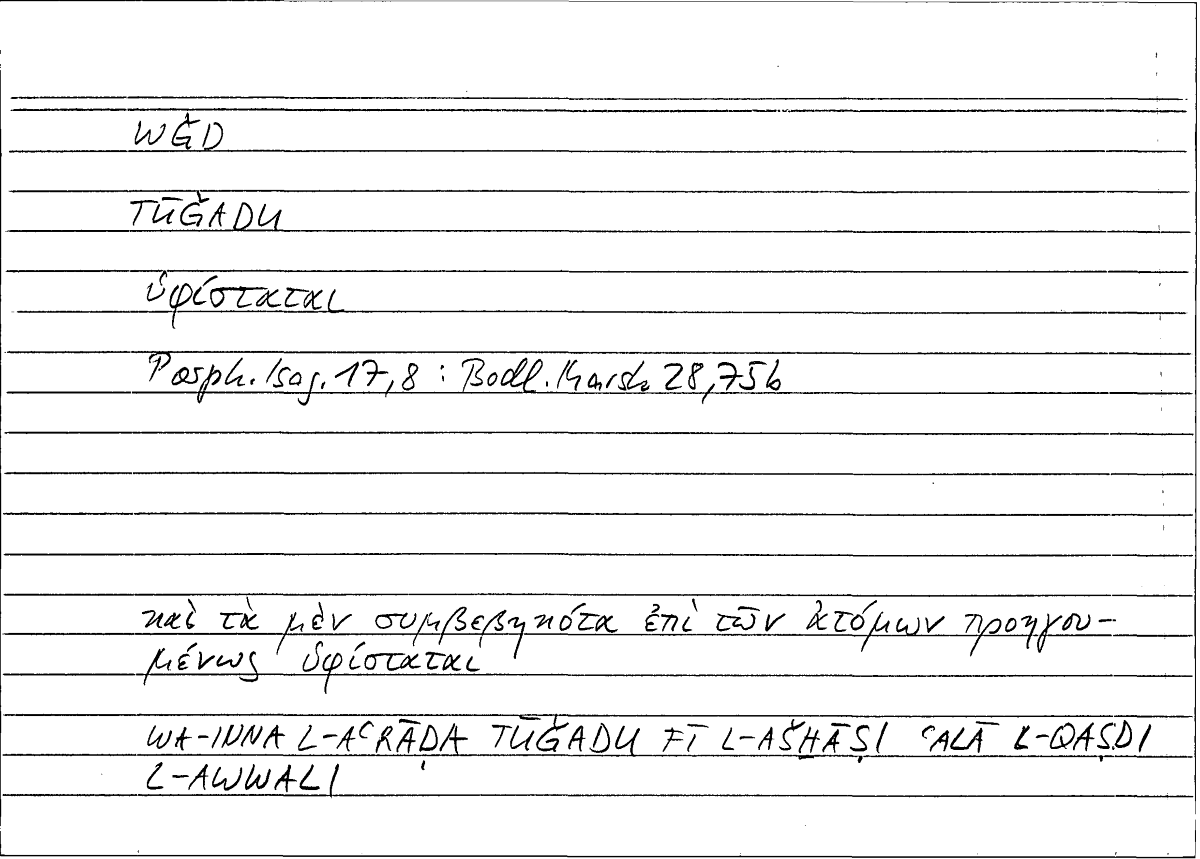 WǦD
TŪǦADU
ὑφίσταται
Porph. Isag. 17,8 : Bodl. Marsh 28,75b
καὶ τὰ μὲν συμβεβηκότα ἐπὶ τῶν ἀτόμων προηγου-
μένως ὑφίσταται
WA-INNA L-AʿRĀḌA TŪǦADU FĪ L-AŠḪĀṢI ʿALĀ L-QAṢDI
L-AWWALI